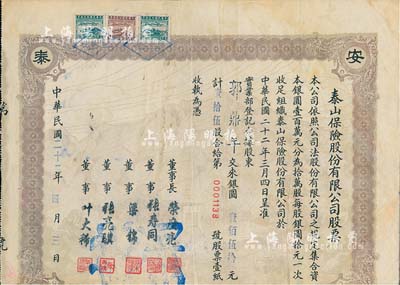 安
泰
泰山保險股份有限公司股票
本公司依照公司法股份有限公司之規定集合資
本銀圓壹百萬元分為拾萬股每股銀圓拾元一次
收足組織泰山保險股份有限公司於
中華民國二十二年三月四日呈准
實業部登記在案
郭 交來銀圓 壹佰伍拾 元
計 拾伍股合給第 0001138 號股票壹紙
收執為憑
董事長
董事
董事 梁
董事
董事 叶
中華民國二十二年 月 日